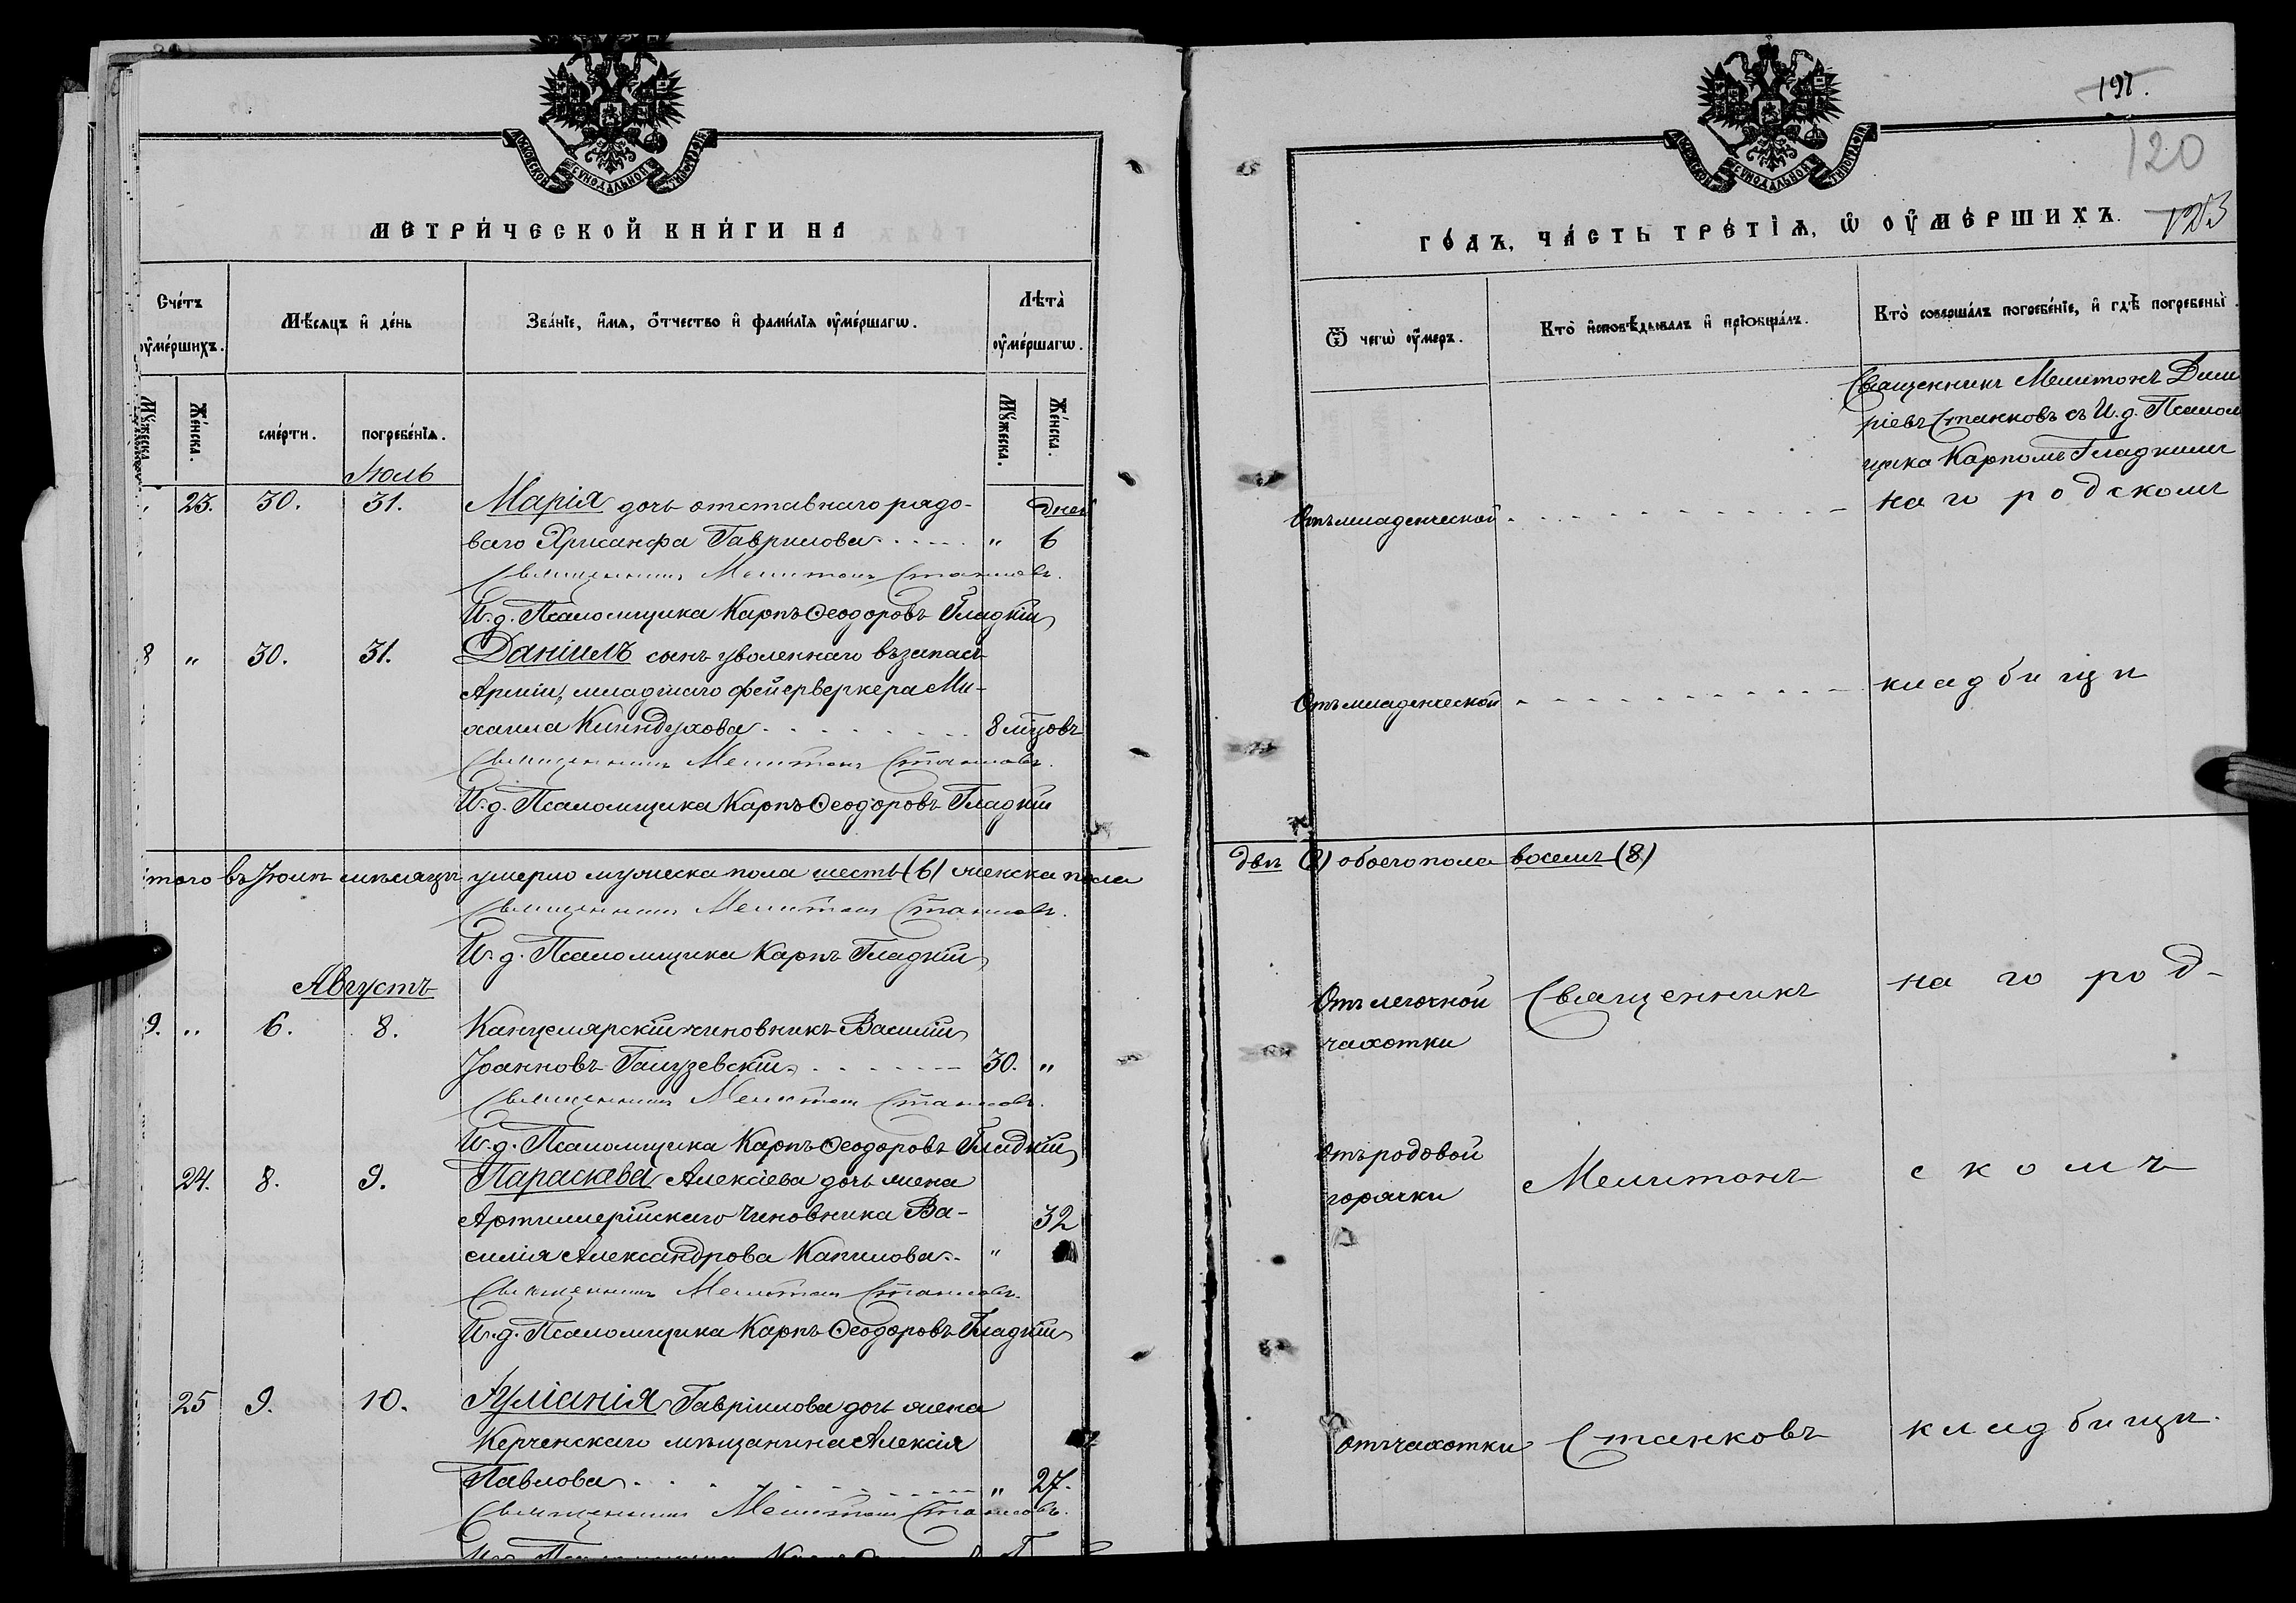 МЕТРИ́ЧЕСКОЙ КНИ́ГИ НА
Сче́тъ оу҆ме́ршихъ.
Мѣ́сяцъ и҆ де́нь
Зва́нїе, и҆́мѧ, ѻ҆́тчество и҆ фами́лїѧ оу҆ме́ршагѡ.
Лѣта̀ оу҆ме́ршагѡ.
Мꙋ́жеска.
Же́нска.
сме́рти.
погребе́нїѧ.
Мꙋ́жеска.
Же́нска.
Іюль
23. 30. 31. Марія дочь отставнаго рядо- дней
ваго Хрисанфа Гаврилова " 6
Священникъ Мелитонъ Станковъ.
И. д. Псаломщика Карпъ Ѳеодоровъ Гладкій
8 " 30. 31. Даніилъ сынъ уволеннаго въ запасъ
Арміи, младшаго фейерверкера Ми-
хаила Киндухова 8 мцовъ
Священникъ Мелитонъ Станковъ.
И. д. Псаломщика Карпъ Ѳеодоровъ Гладкій
того въ Іюлѣ мѣсяцѣ умерло мужеска пола шесть (6) женска пола
Священникъ Мелитонъ Станковъ.
И. д. Псаломщика Карпъ Гладкій
Августъ
9. " 6. 8. Канцелярскій чиновникъ Василій
Іоанновъ Галузевскій 30. "
Священникъ Мелитонъ Станковъ.
И. д. Псаломщика Карпъ Ѳеодоровъ Гладкій
24. 8. 9. Параскева Алексіева дочь жена
Артиллерійскаго чиновника Ва- 32
силія Александрова Капилова "
Священникъ Мелитонъ Станковъ.
И. д. Псаломщика Карпъ Ѳеодоровъ Гладкій
25 9. 10. Іуліанія Гавріилова дочь жена
Керченскаго мѣщанина Алексія
Павлова " 27.
Священникъ Мелитонъ Станковъ.
197.
120
123
ГО́ДЪ, ЧА́СТЬ ТРЕ́ТІѦ, Ѡ҆ ОУ҆МЕ́РШИХЪ.
Ѿ чегѡ̀ оу҆́меръ.
Кто̀ и҆сповѣ́дывалъ и҆ прїѡбща́лъ.
Кто̀ соверша́лъ погребе́нїе, и҆ гдѣ̀ погребены̀.
Священникъ Мелитонъ Дими
ріевъ Станковъ съ И. д. Псалом
щика Карпомъ Гладкимъ
Отъ младенческой на городскомъ
Отъ младенческой кладбищѣ
двѣ (2) обоего пола восемь (8)
Отъ легочной Священникъ на город-
чахотки
Отъ родовой
горячки Мелитонъ скомъ
отъ чахотки Станковъ кладбищѣ.